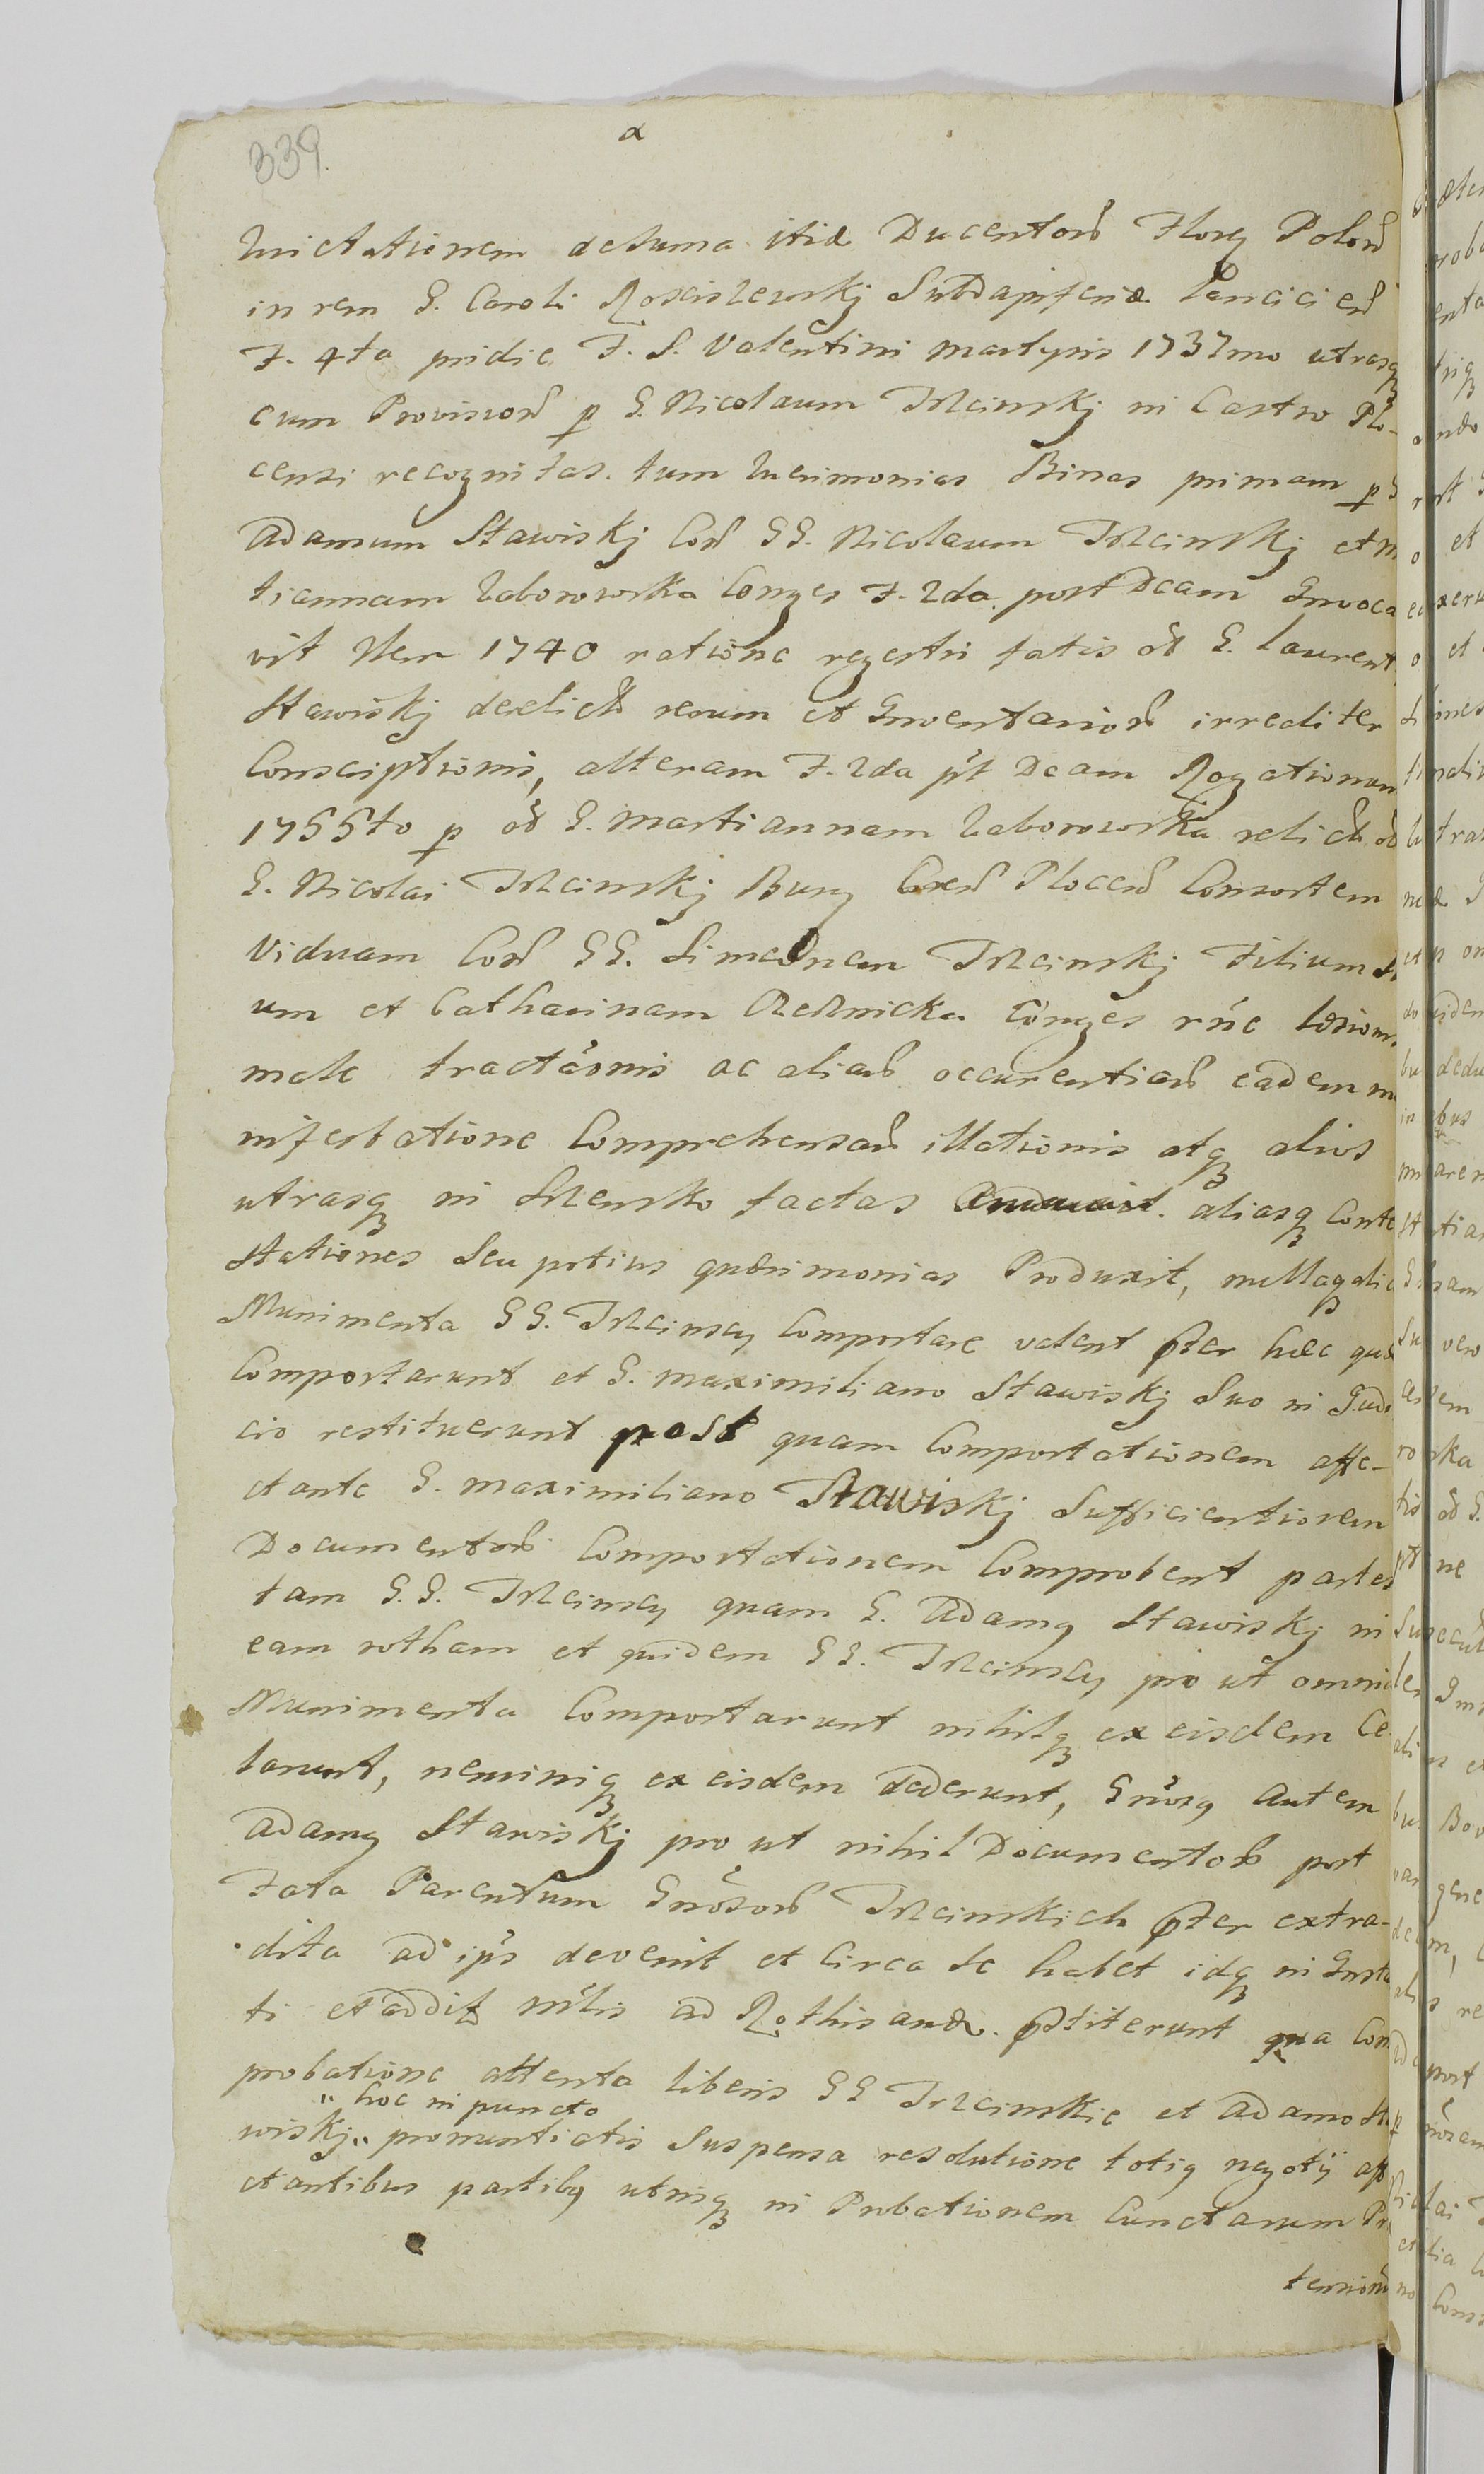 339.
a
Quietationem de Suma itidē Ducentorū Floreň Poloň
in rem G. Caroli Rosciszewskj Subdapiferidæ Lanciciēn
F. 4ta pridie F. S. Valentini martyris 1737mo utrasq
cum Provisioň p G. Nicolaum Trzcinskj in Castro Plo-
censi recognitas. tum Quærimonias Binas primam p G
Adamum Stawiskj Coň GG. Nicolaum Trzcinskj et M
tiannam Zaborowska Conges F. 2da post Dcam Invoca
vit 1740 ratione regestri fatis oď G. Laurent
Stawiskj derelictň rerum et Inventarioň irrealiter
Consciptionis, alteram F. 2da pst Dcam Rogationum
1755to p oď G. Martiannam Zaborowska relictň oď
G. Nicolai Trzcinskj Burg Creň Ploceň Consortem
Viduam Coň GG. Simeonem Trzcinskj Filium S
um et Catharinam Rednicka Conges rñe læsion
male tractãonis ac aliarū occurentiarū eadem m
nifestatione Comprehensarū illationis atq alios
utrasq in Srzensko factas aliasq Conte
stationes Seu potius quærimonias Produxit, nullaq alia
Munimenta GG. Trzcinscy Comportare valent pter hæc quæ
Comportarunt et G. Maximiliano Stawiskj Suo in Judi
cio restituerunt post quam Comportationem affe-
ctante G. Maximiliano Stawiskj Sufficientiorem
Documentorū Comportationem Comprobent partes
tam G.G. Trzcinscy quam G. Adamg Stawiskj in
eam rotham et quidem GG. Trzcinscy pro ut omnia
Munimenta Comportarunt nihilq ex eisdem Ce
larunt, neminiq ex eisdem dederunt, Gnŏsg autem
Adamg Stawiskj pro ut nihil Documentorū post
Fata Parentum Gnŏsorū Trzcinskich pter extra-
dita ad ips devenit et Circa Se habet idq in Insta
ti et addit ad Rothisanđ. pstiterunt qua Com
probatione attenta liberis GG Trzcinskie et Adamo Sta
" hoc in puncto
wiskj " pronuntiatis Suspensa resolutione totig negotij affe
ctantibus partibg utrisq in Probationem Cunctarum Præ
tensionū